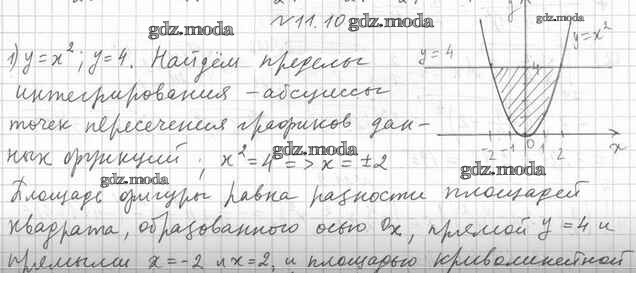 №11.10
1) y=x²; y=4. Найдём пределы
интегрирования – абсциссы
точек пересечения графиков дан-
ных функций; x²=4 => x=±2
Площадь фигуры равна разности площадей
квадрата, образованного осью Ox, прямой y=4 и
прямыми x=-2 и x=2, и площадью криволинейной
y
y=x²
y=4
4
-2 -1 0 1 2 x
gdz.moda
gdz.moda
gdz.moda
gdz.moda
gdz.moda
gdz.moda